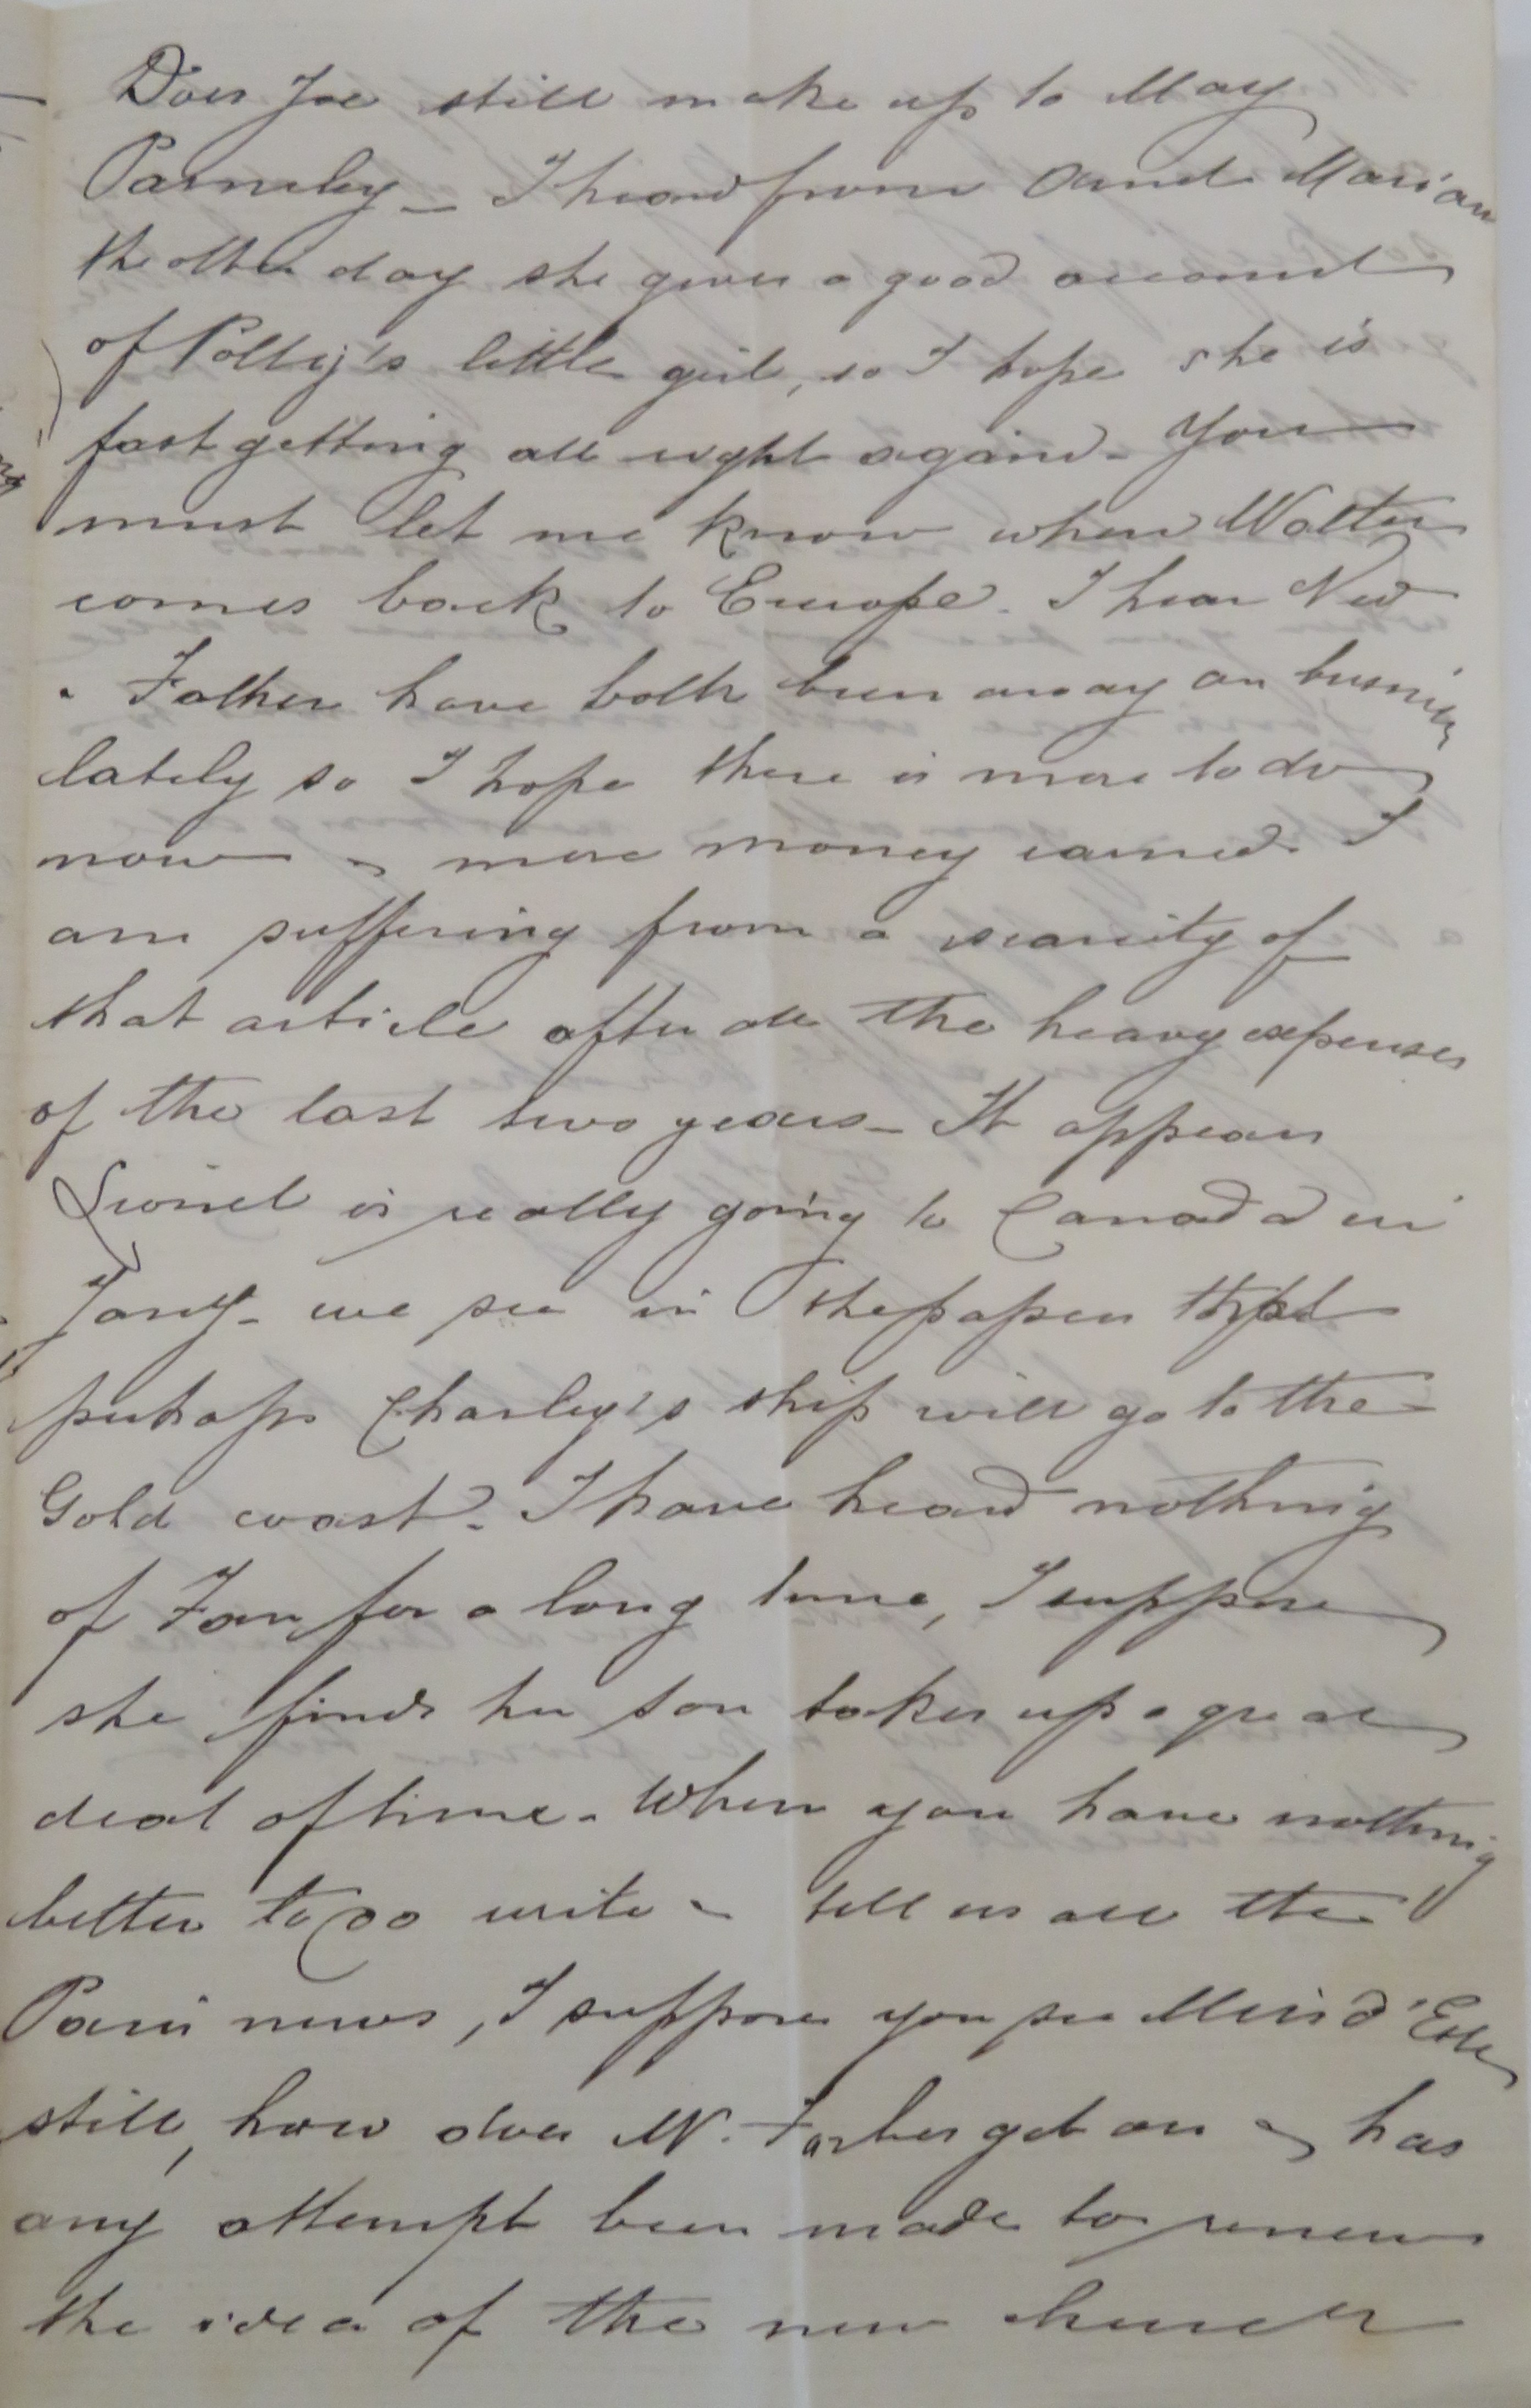 Does Joe still make up to May
Parnsley _ I heard from Aunt Marian
the other day she gives a good account
of Polly's little girl, so I hope she is
fast getting all right again - You
must let me know when Walter
comes back to Europe. I hear Ned
& Father have both been away on business
lately so I hope there is more to do
now & more money earned. I
am suffering from a scarcity of
that article after all the heavy expenses
of the last two years - It appears
Lionel is really going to Canada in
Jany - we see in the papers that
perhaps Charley's ship will go to the
Gold coast - I have heard nothing
of Fan for a long time, I suppose
she finds her son takes up a great
deal of time - When you have nothing
better to do write & tell us all the
Paris news, I suppose you see Miss d'Este
still, how does Mr. Forbes get on & has
any attempt been made to renew
the idea of the new church